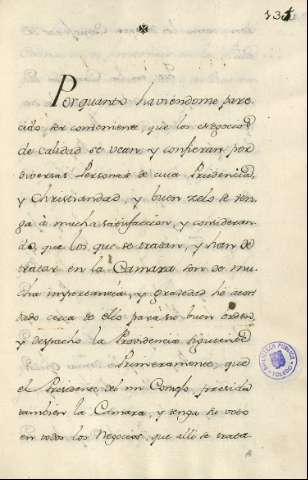 131
Por quanto haviendome pare-
cido ser conveniente, que los negocios
de calidad se vean, y confieran por
diversas Personas de cuia Prudencia,
y Christiandad, y buen zelo se ten-
ga à mucha satisfaccion, y consideran-
do, que los que se tratan, y han de
tratar en la Camara son de mu-
cha importancia, y gravedad he acor-
dado cerca de ello para su buen orden,
y despacho la Providencia siguiente
Primeramente que
el Presidente del mi Consejo presida
tambien la Camara, y tenga su voto
en todos los Negocios, que alli se trata-
BIBLIOTECA PUBLICA
TOLEDO